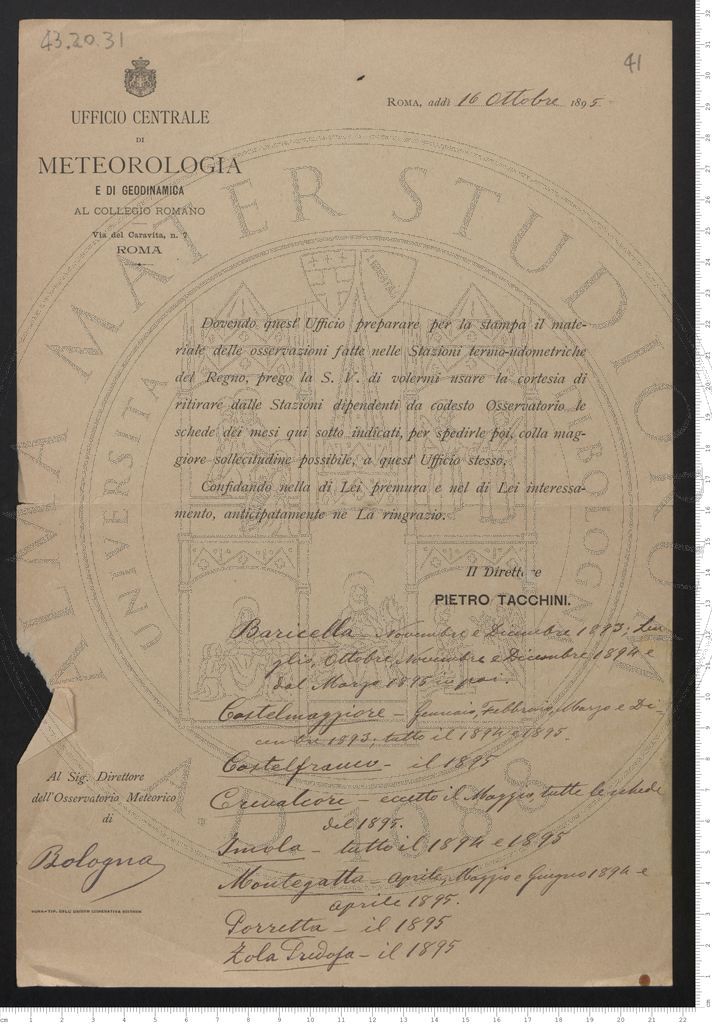 43.20.31
41
UFFICIO CENTRALE
DI
METEOROLOGIA
E DI GEODINAMICA
AL COLLEGIO ROMANO
Via del Caravita, n. 7
ROMA
ROMA, addì 16 Ottobre 1895
Dovendo quest' Ufficio preparare per la stampa il mate-
riale delle osservazioni fatte nelle Stazioni termo-udometriche
del Regno, prego la S. V. di volermi usare la cortesia di
ritirare dalle Stazioni dipendenti da codesto Osservatorio le
schede dei mesi qui sotto indicati, per spedirle poi, colla mag-
giore sollecitudine possibile, a quest' Ufficio stesso.
Confidando nella di Lei premura e nel di Lei interessa-
mento, anticipatamente ne La ringrazio.
Il Direttore
PIETRO TACCHINI.
Baricella - Novembre e Dicembre 1893; Lu-
glio, Ottobre, Novembre e Dicembre 1894 e
dal Marzo 1895 in poi.
Castelmaggiore - Gennaio, Febbraio, Marzo e Di-
cembre 1893, tutto il 1894 e 1895.
Castelfranco - il 1895
Crevalcore - eccetto il Maggio, tutte le schede
del 1895.
Imola - tutto il 1894 e 1895
Montegatta - Aprile, Maggio e Giugno 1894 e
Aprile 1895.
Porretta - il 1895
Zola Predosa - il 1895
Al Sig. Direttore
dell'Osservatorio Meteorico
di
Bologna
ALMA MATER STUDIORUM
UNIVERSITA DI BOLOGNA
A.D. 1088